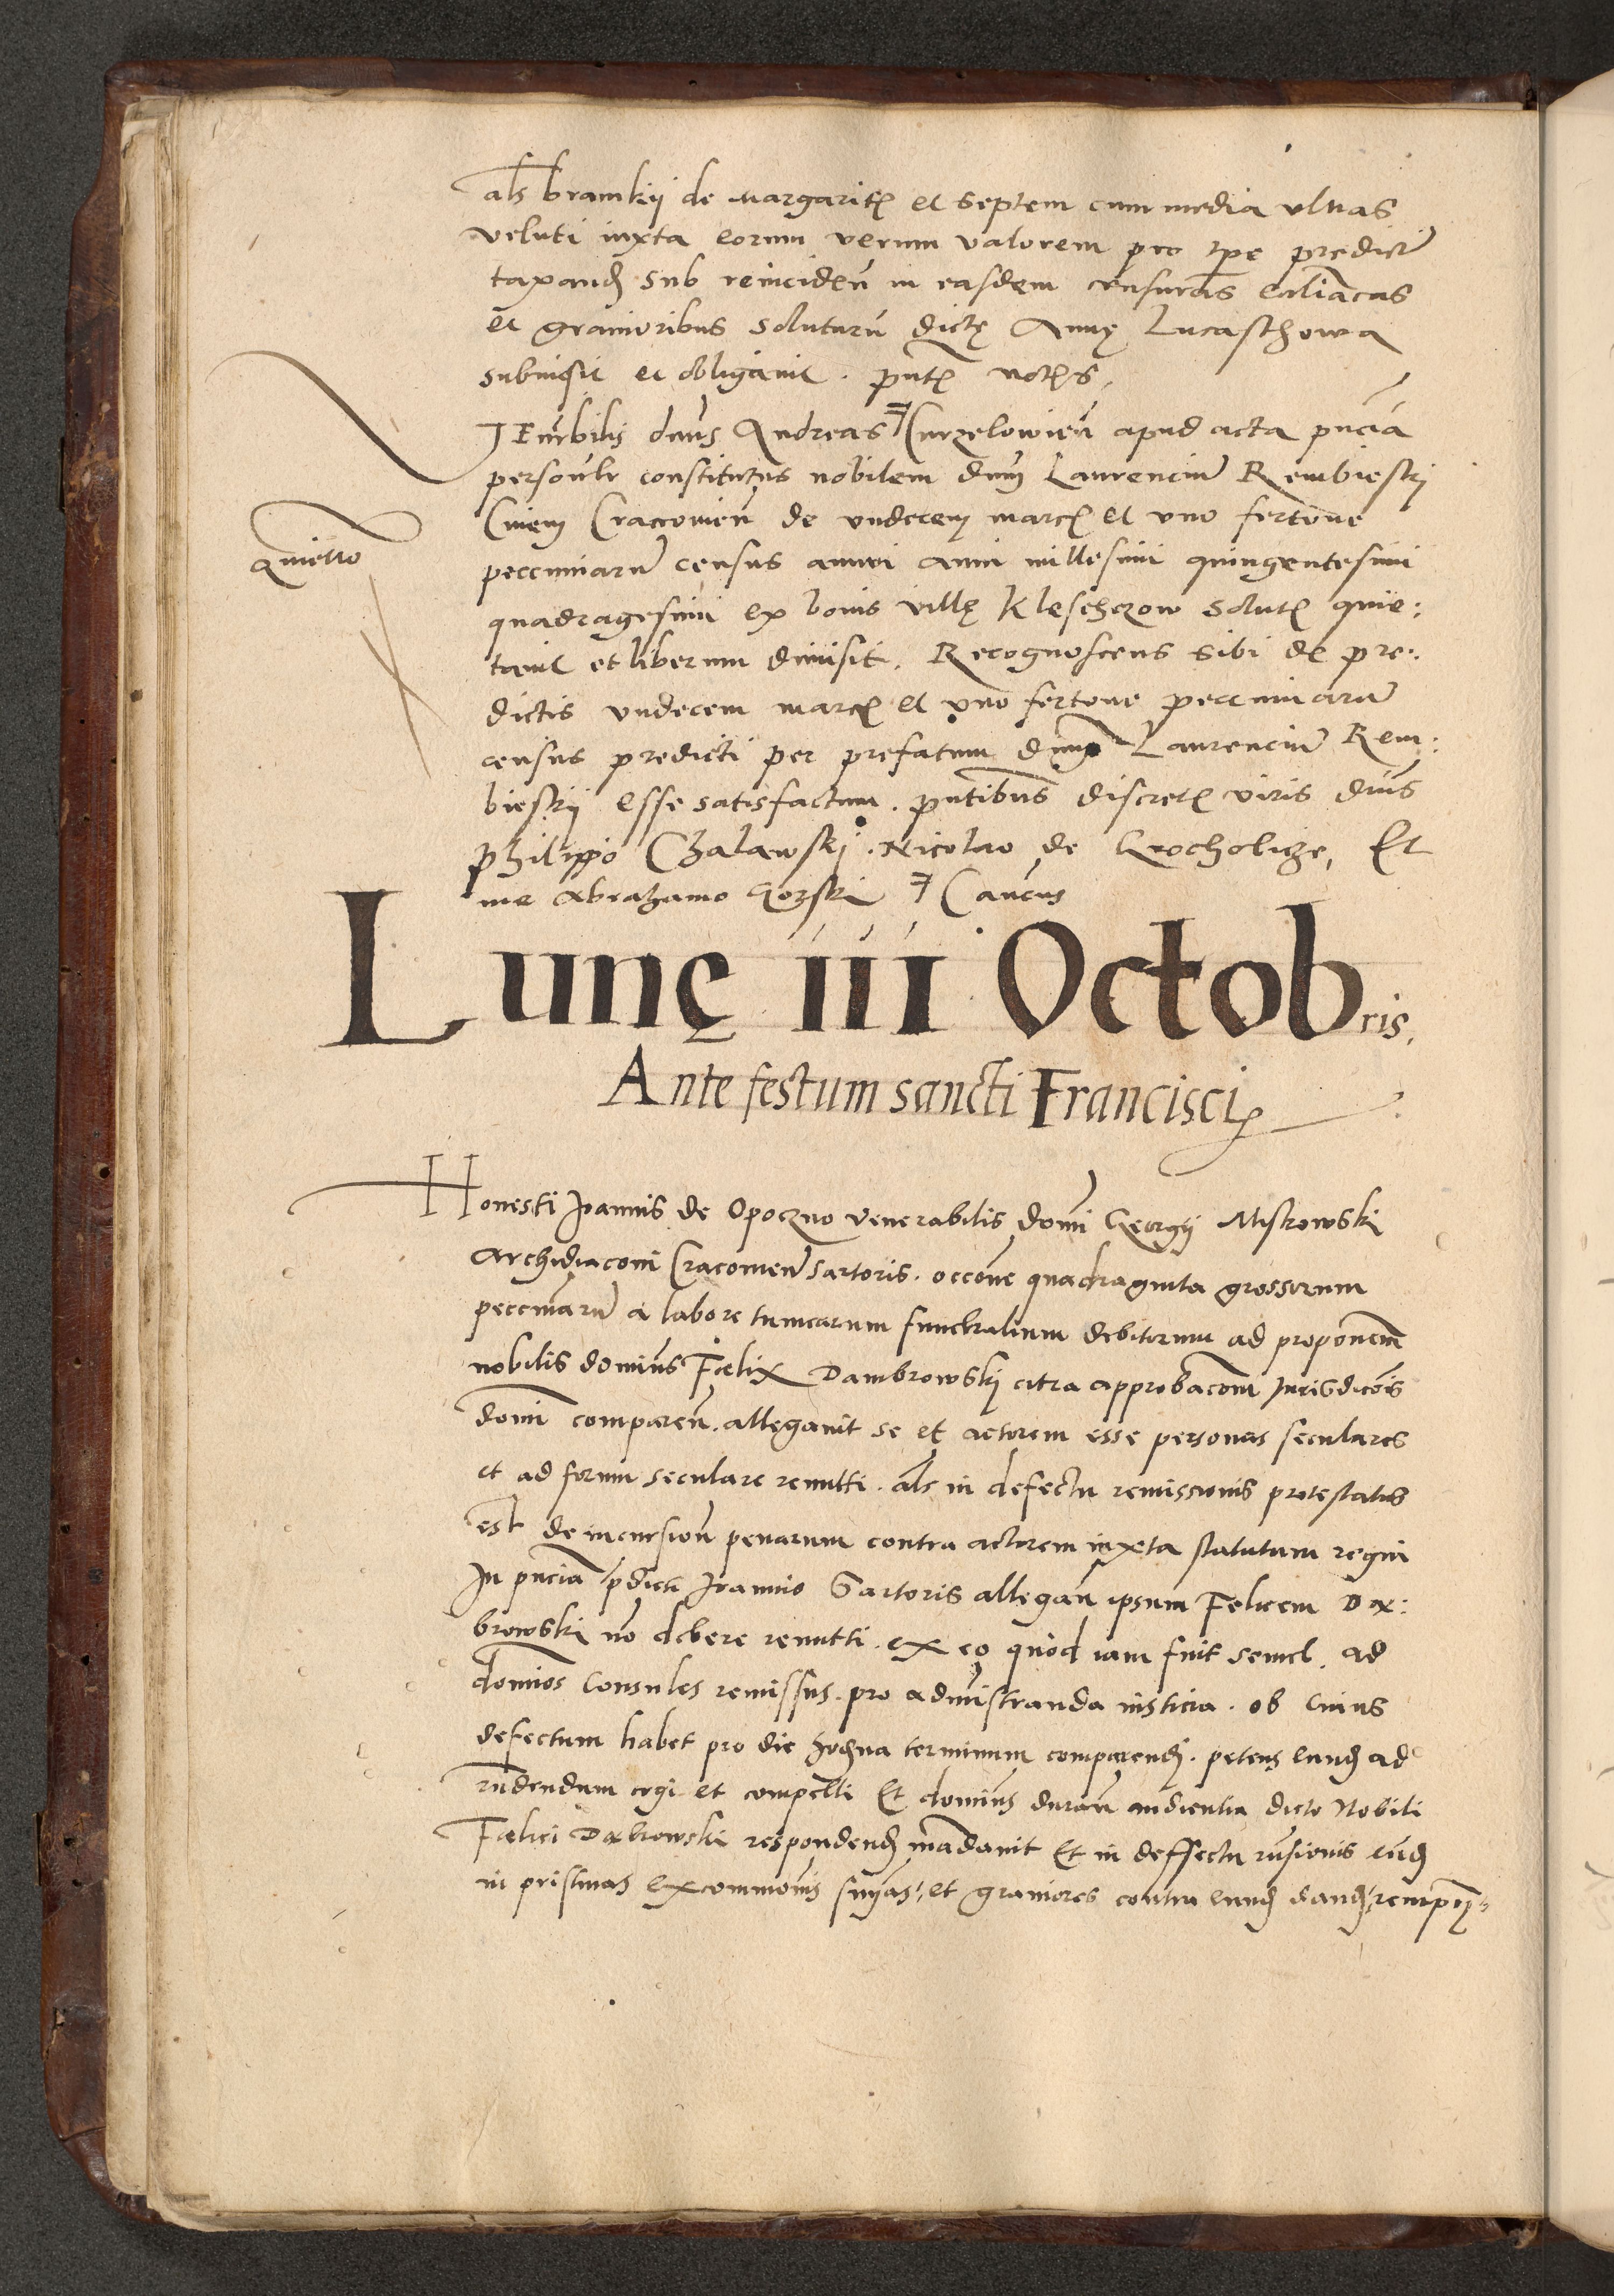 als bramkij de margarit et septem cum media ulnas
veluti iuxta eorum verum valorem pro tpe predict
taxand sub reinciden in easdem censuras ecliacas
et gravioribus soluturu dictę Annę Lucaschowa
submisit et obligavit. pntt notis
Venrbilis dnus Andreas Curzelowien apud acta pncia
personlr constitutus nobilem dnm Laurenciu Rembieski
Civem Cracovien de undecem marc et uno fertone
quietto
peccuniaru census annui anni millesimi quingentesimi
quadragesimi ex bonis villę Kleschczow solut quie:
tavit et liberum dimisit. Recognoscens sibi de pre:
dictis undecem marc et uno fertone peccuniaru
census predicti per prefatum dnm Laurenciu Rem:
bieskij esse satisfactum. pntibus discret viris dnis
philippo Chalawski. Nicolao de Grocholicze, Et
me Abrahamo Gorski Cancus
Lunę iii Octobris,
Ante festum sancti Francisci
Honesti Joannis de Opoczno venerabilis domi Georgij Miskowski
Archidiaconi Cracovien sartoris. occone quadraginta grossorum
peccuniaru a labore tunicarum funebralium debitorum ad proponem
nobilis dominus Fœlix Dambrowskij citra approbacom Jurisdicois
domi comparen. allegavit se et actorem esse personas seculares
et ad forum seculare remitti. als in defectu remissionis protestatus
est de incursion penarum contra actorem iuxta statutum regni
In pncia pdicti Joannis Sartoris allegan ipsum Felicem Dą:
browski no debere remitti. ex eo quod iam fuit semel. ad
domios Consules remissus. pro administranda iusticia. ob cuius
defectum habet pro die hodierna terminum comparendi. petens eund ad
rndendum cogi et compelli Et dominus duran audientia dicto Nobili
Fœlici Dąbrowski respondend mandavit Et in deffectu rnsionis eund
in pristinas excommonis snias, et graviores contra eund dand